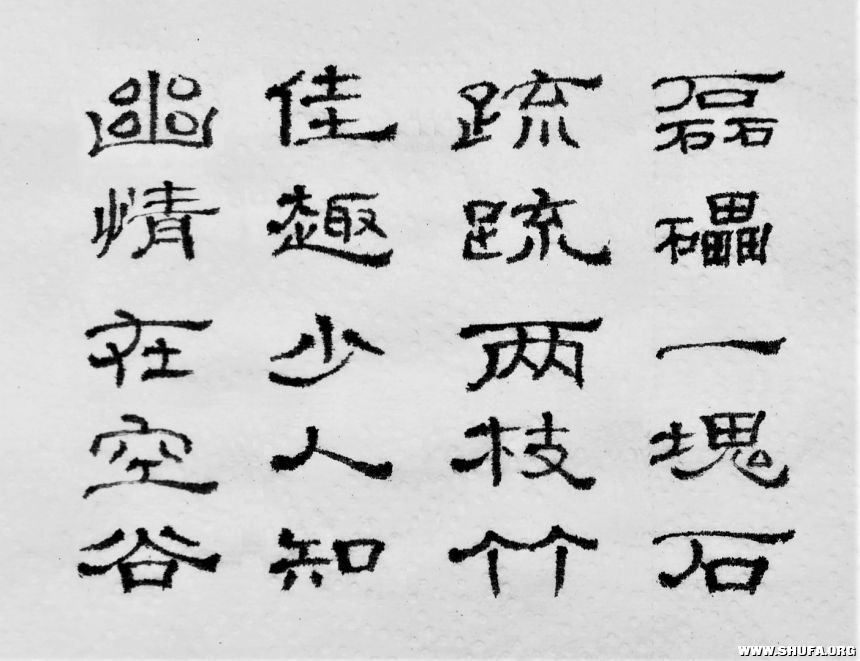 磊礧一塊石
疏疏两枝竹
佳趣少人知
幽情在空谷
WWW.SHUFA.ORG